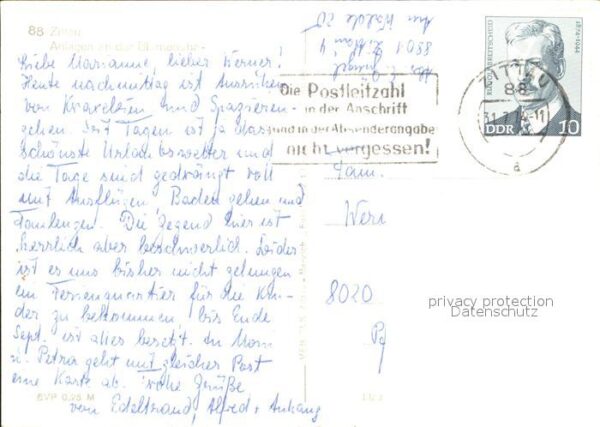 88 Zittau
Anlagen an der Blumenuhr
Liebe Marianne, lieber Werner!
Heute nachmittag ist Ausruhen
von Kraxeleien und Spazieren-
gehen. Seit Tagen ist ja das
schönste Urlaubswetter und
die Tage sind gedrängt voll
mit Ausflügen, Baden gehen und
Faulenzen. Die Gegend hier ist
herrlich aber beschwerlich. Leider
ist es uns bisher nicht gelungen
ein Ferienquartier für die Kin-
der zu bekommen, bis Ende
Sept. ist alles besetzt. An Mon
u. Petra geht mit gleicher Post
eine Karte ab. Frohe Grüße
von Edeltraud, Alfred u. Anhang
EVP 0,25 M
Die Postleitzahl
in der Anschrift
und in der Absenderangabe
nicht vergessen!
ZITTAU
88
31.7.74-11
a
1874-1944
DDR 10
8801
Am Walde 20
Fam.
Wer
8020
privacy protection
Datenschutz